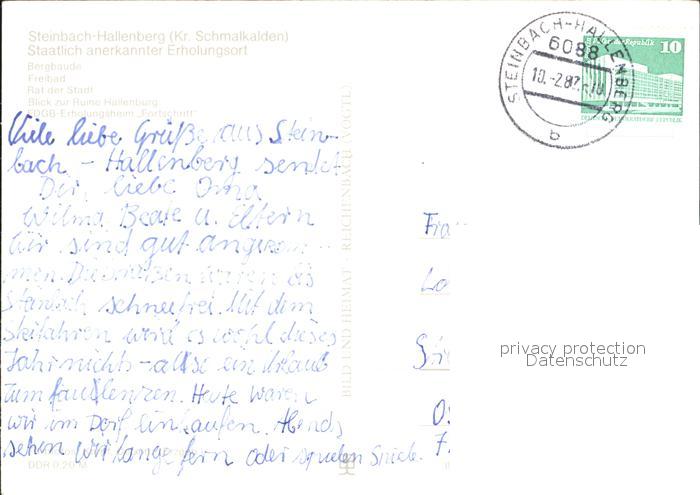 Steinbach-Hallenberg (Kr. Schmalkalden)
Staatlich anerkannter Erholungsort
Bergbaude
Freibad
Rat der Stadt
Blick zur Ruine Hallenburg
FDGB-Erholungsheim „Fortschritt"
Viele liebe Grüße aus Stein-
bach - Hallenberg sendet
Dir, liebe Oma
Wilma, Beate u. Eltern
Wir sind gut angekom-
men. Die Straßen waren bis
Steinbach schneefrei. Mit dem
Skifahren wird es wohl dieses
Jahr nichts - also ein Urlaub
zum faulenzen. Heute waren
wir im Dorf einkaufen. Abends
sehen wir lange fern oder spielen Spiele.
DDR 0,20 M
BILD UND HEIMAT · REICHENBACH (VOGTL)
STEINBACH-HALLENBERG
6088
10.-2.87
b
10
Fra
Lo
St
O
7.
privacy protection
Datenschutz